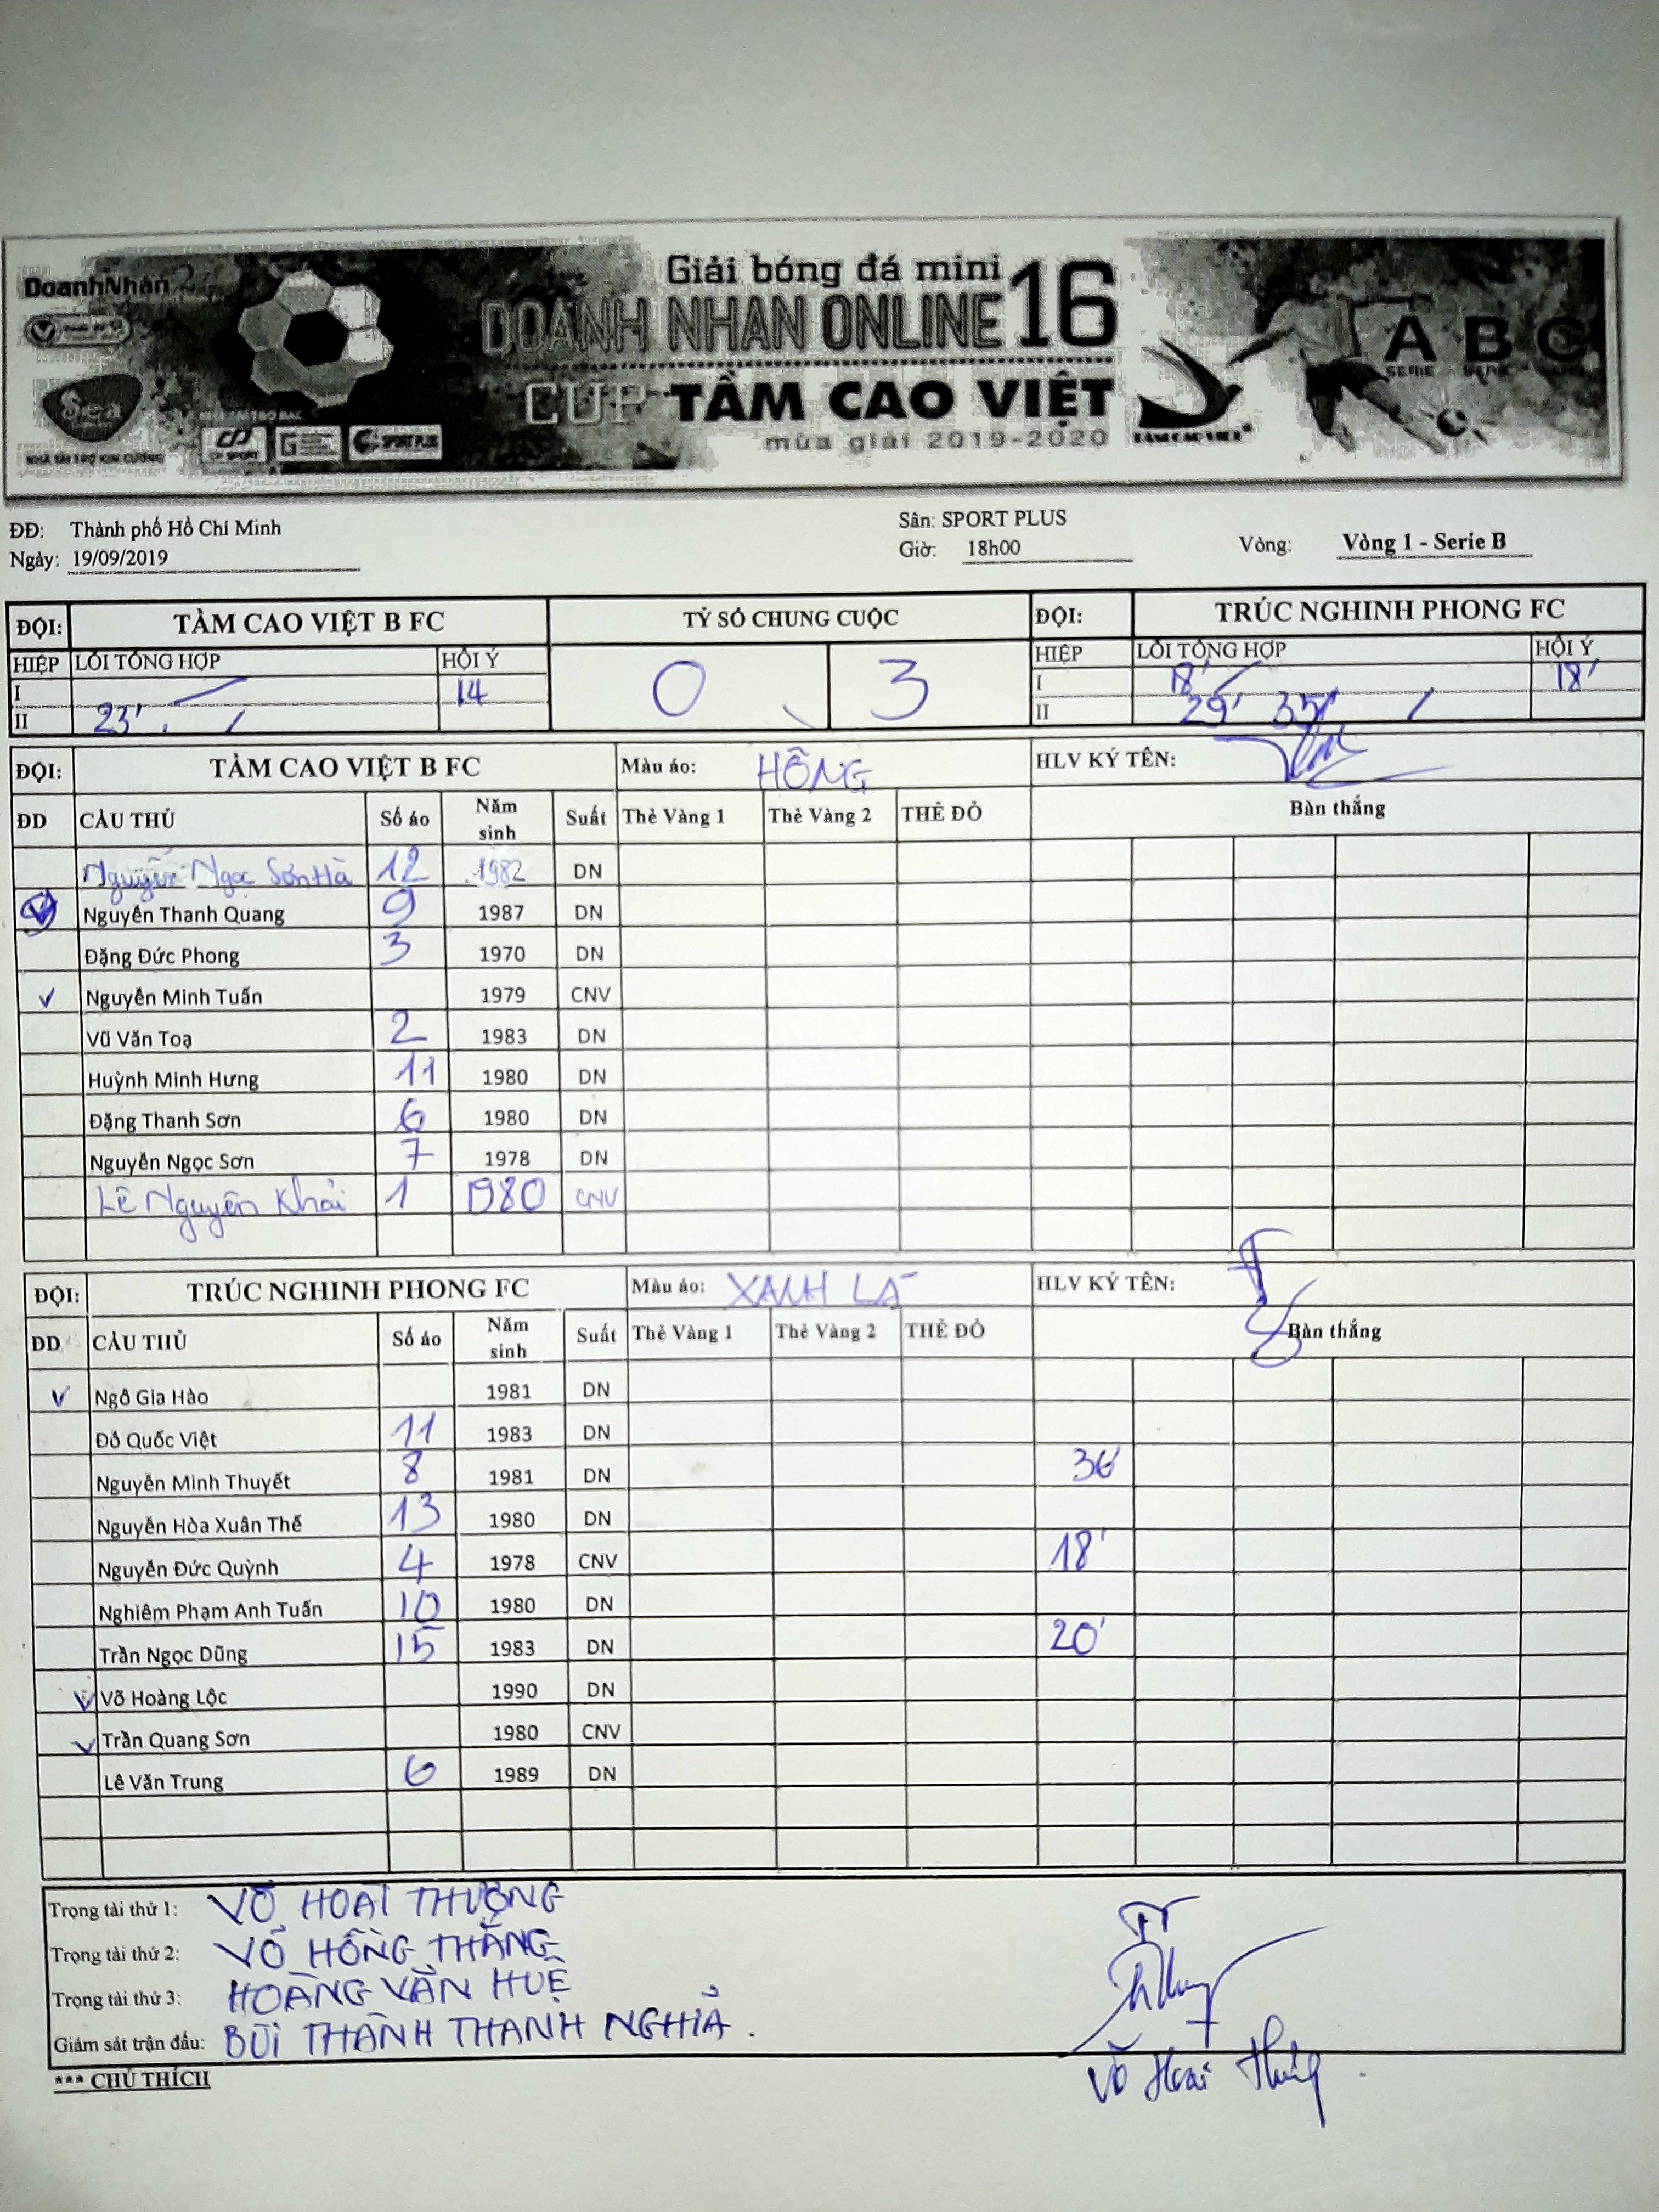 DoanhNhân
Giải bóng đá mini
DOANH NHAN ONLINE 16
CUP TẦM CAO VIỆT
mùa giải 2019-2020
A B C
SERIE
NHÀ TÀI TRỢ KIM CƯƠNG
CP SPORT
SPORT PLUS
TẦM CAO VIỆT
ĐĐ: Thành phố Hồ Chí Minh
Sân: SPORT PLUS
Ngày: 19/09/2019
Giờ: 18h00
Vòng: Vòng 1 - Serie B
ĐỘI: TẦM CAO VIỆT B FC TỶ SỐ CHUNG CUỘC ĐỘI: TRÚC NGHINH PHONG FC
HIỆP LỖI TỔNG HỢP HỘI Ý 0 3 HIỆP LỖI TỔNG HỢP HỘI Ý
I 14 I 18' 18'
II 23' II 29' 35'
ĐỘI: TẦM CAO VIỆT B FC Màu áo: HỒNG HLV KÝ TÊN:
ĐD CẦU THỦ Số áo Năm sinh Suất Thẻ Vàng 1 Thẻ Vàng 2 THẺ ĐỎ Bàn thắng
Nguyễn Ngọc Sơn Hà 12 1982 DN
Nguyễn Thanh Quang 9 1987 DN
Đặng Đức Phong 3 1970 DN
Nguyễn Minh Tuấn 1979 CNV
Vũ Văn Toạ 2 1983 DN
Huỳnh Minh Hưng 11 1980 DN
Đặng Thanh Sơn 6 1980 DN
Nguyễn Ngọc Sơn 7 1978 DN
Lê Nguyên Khải 1 1980 CNV
ĐỘI: TRÚC NGHINH PHONG FC Màu áo: XANH LÁ HLV KÝ TÊN:
ĐD CẦU THỦ Số áo Năm sinh Suất Thẻ Vàng 1 Thẻ Vàng 2 THẺ ĐỎ Bàn thắng
Ngô Gia Hào 1981 DN
Đỗ Quốc Việt 11 1983 DN
Nguyễn Minh Thuyết 8 1981 DN 36'
Nguyễn Hòa Xuân Thế 13 1980 DN
Nguyễn Đức Quỳnh 4 1978 CNV 18'
Nghiêm Phạm Anh Tuấn 10 1980 DN
Trần Ngọc Dũng 15 1983 DN 20'
Võ Hoàng Lộc 1990 DN
Trần Quang Sơn 1980 CNV
Lê Văn Trung 6 1989 DN
Trọng tài thứ 1: VÕ HOÀI THƯỢNG
Trọng tài thứ 2: VÕ HỒNG THẮNG
Trọng tài thứ 3: HOÀNG VĂN HUỆ
Giám sát trận đấu: BÙI THÀNH THANH NGHIẢ.
Võ Hoài
*** CHÚ THÍCH